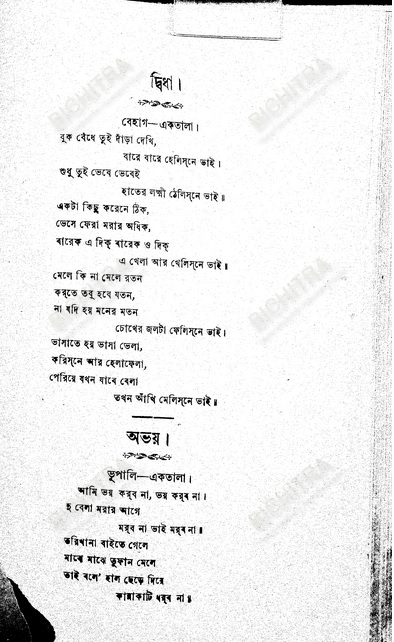 দ্বিধা।
বেহাগ—একতালা।
বুক বেঁধে তুই দাঁড়া দেখি,
বারে বারে হেলিস্‌নে ভাই।
শুধু তুই ভেবে ভেবেই
হাতের লক্ষ্মী ঠেলিস্‌নে ভাই॥
একটা কিছু করেনে ঠিক,
ভেসে ফেরা মরার অধিক,
বারেক এ দিক্ বারেক ও দিক্
এ খেলা আর খেলিস্‌নে ভাই॥
মেলে কি না মেলে রতন
কর্‌তে তবু হবে যতন,
না যদি হয় মনের মতন
চোখের জলটা ফেলিস্‌নে ভাই।
ভাসাতে হয় ভাসা ভেলা,
করিস্‌নে আর হেলাফেলা,
পেরিয়ে যখন যাবে বেলা
তখন আঁখি মেলিস্‌নে ভাই॥
অভয়।
ভূপালি—একতালা।
আমি ভয় কর্‌ব না, ভয় কর্‌ব না।
দু বেলা মরার আগে
মর্‌ব না ভাই মর্‌ব না॥
তরিখানা বাইতে গেলে
মাঝে মাঝে তুফান মেলে
তাই বলে' হাল ছেড়ে দিয়ে
কান্নাকাটি ধর্‌ব না॥
BICHITRA
BICHITRA
BICHITRA
BICHITRA
BICHITRA
BICHITRA